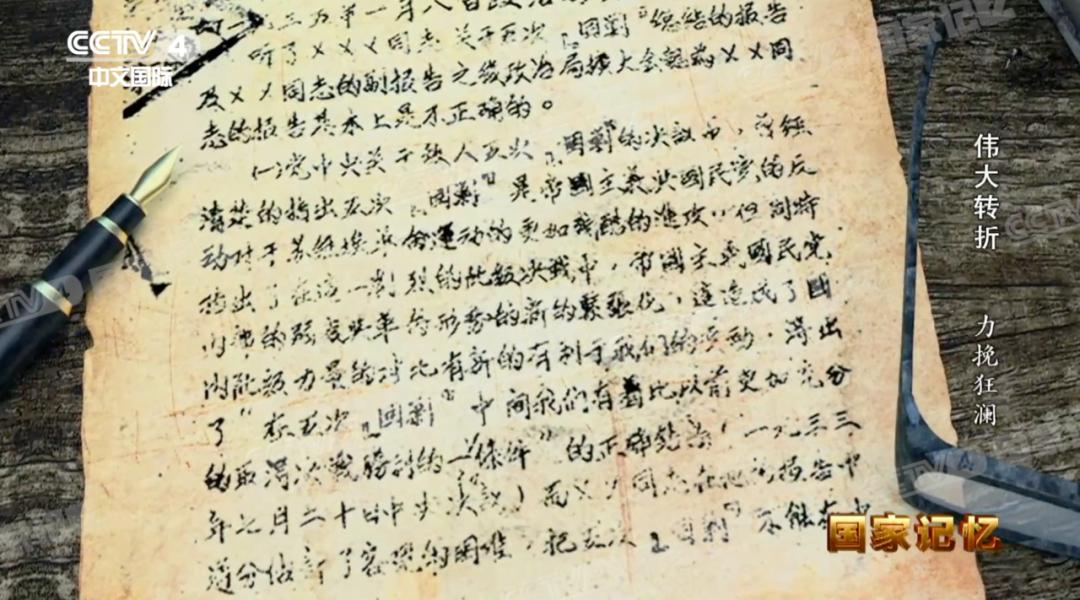 CCTV 4
中文国际
一九三五年一月八日政治
听了ㄨㄨㄨ同志关于五次『围剿』总结的报告
及ㄨㄨ同志的副报告之后政治局扩大会認为ㄨㄨ同
志的报告基本上是不正确的。
㈠党中央关于敌人五次『围剿』的决议中，曾经
清楚的指出五次『围剿』是帝國主義与國民党的反
动对于苏维埃革命運动的更加残酷的進攻，但同時
指出了在这一剧烈的阶级决战中，帝國主義國民党
内部的弱点与革命形势的新的緊張化，這造成了國
内阶级力量的对比有新的有利于我们的变动，得出
了"在五次『围剿』中间我们有着比以前更加充分
的取得决战勝利的一切條件"的正确结論（一九三三
年七月二十四日中央决议）而ㄨㄨ同志在他的报告中
过分估計了客观的困难，把五次『围剿』不能在
伟大转折 力挽狂澜
国家记忆